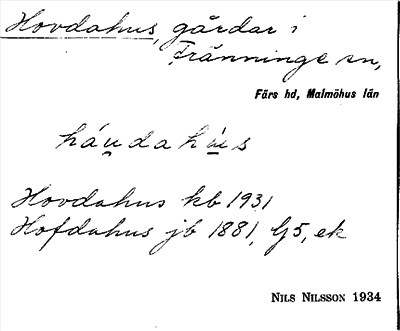 Hovdahus, gårdar i
Tränninge sn,
Färs hd, Malmöhus län
háu̯dahu̯s
Hovdahus kb 1931
Hofdahus jb 1881, G5, ek
NILS NILSSON 1934